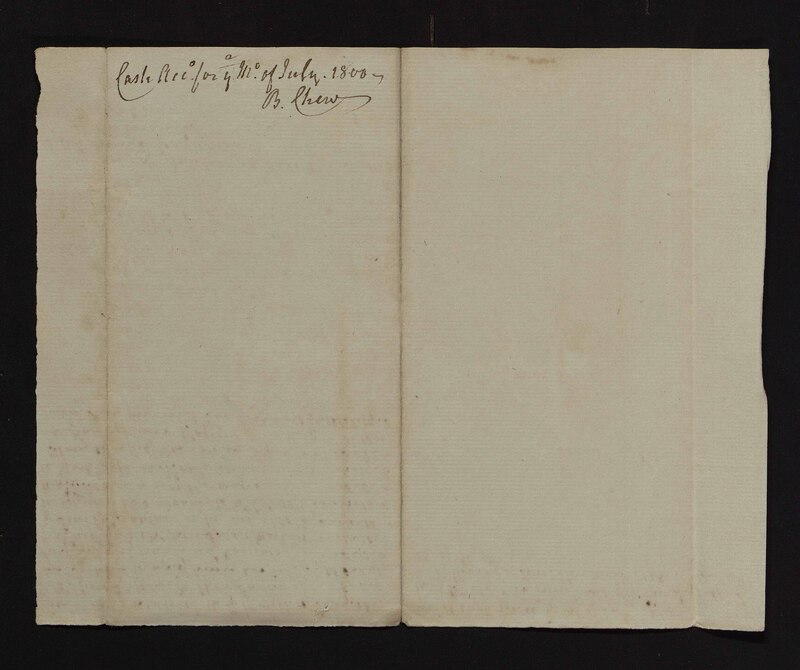 Cash Acc.º for yᵉ Mº of July. 1800
B. Chew